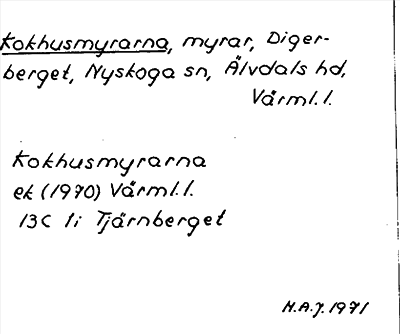 Kokhusmyrarna, myrar, Diger-
berget, Nyskoga sn, Älvdals hd,
Värml. l.
Kokhusmyrarna
ek (1970) Värml. l.
13C 1i Tjärnberget
H.A.J. 1971